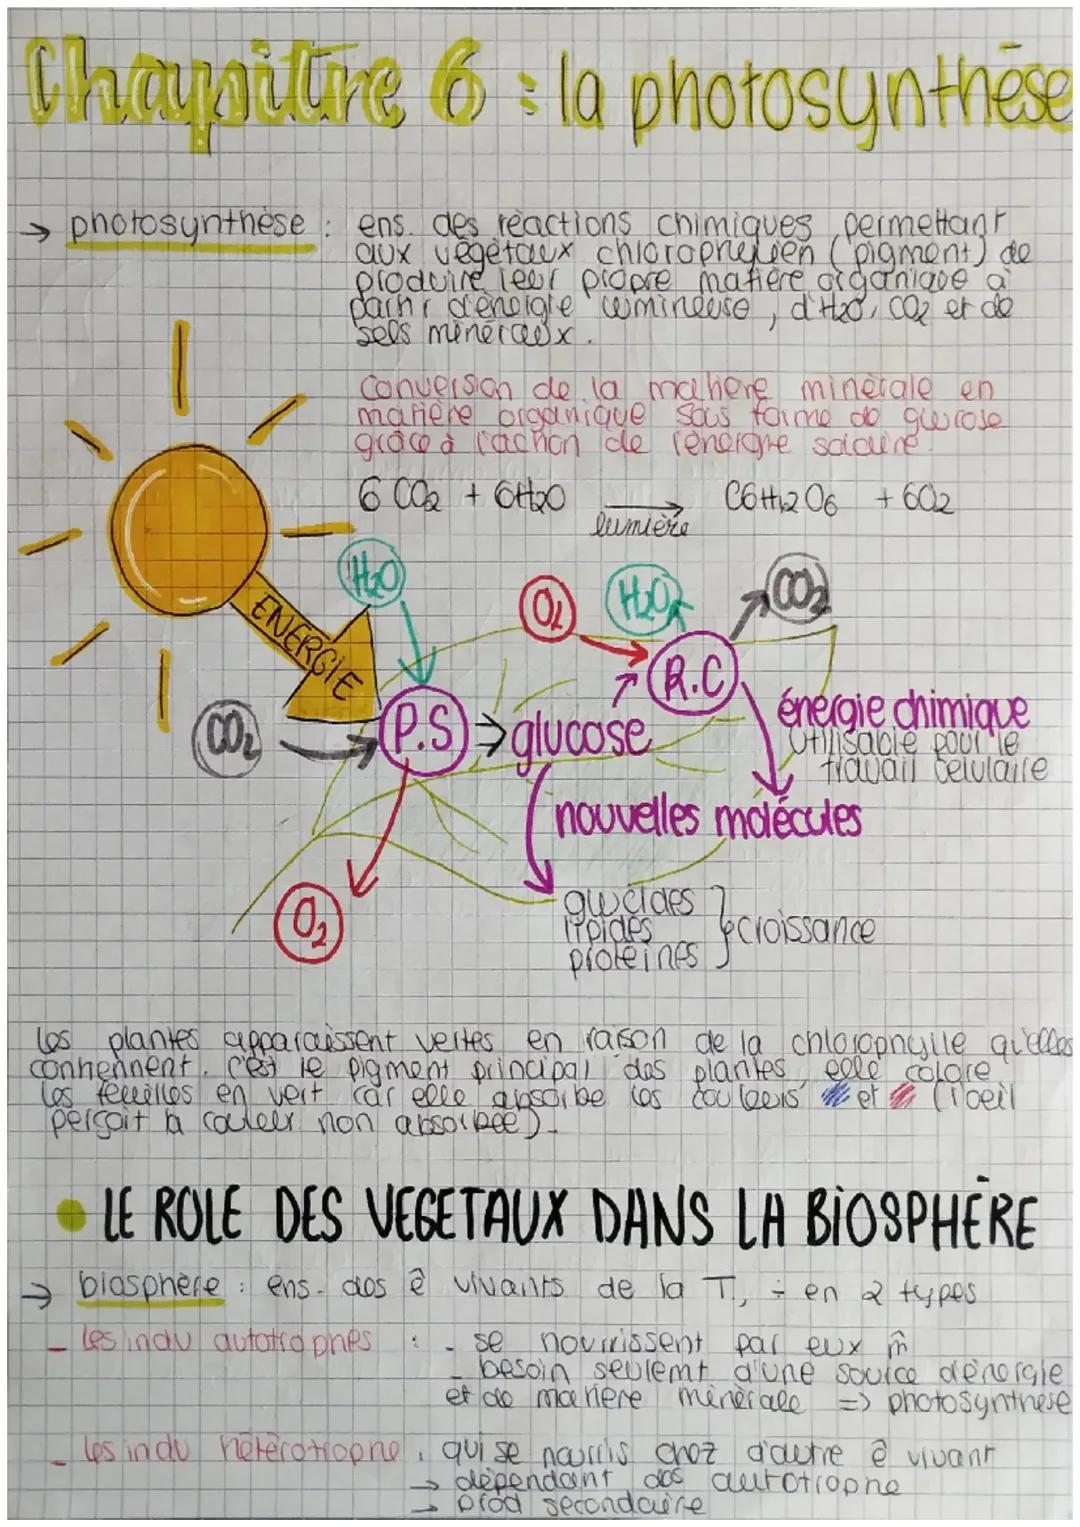 Chapitre 6 : la photosynthèse
→ photosynthèse : ens. des réactions chimiques permettant
aux végétaux chlorophyllien (pigment) de
produire leur propre matière organique à
partir d'énergie lumineuse, d'H2O, CO2 et de
sels minéraux.
conversion de la matière minérale en
matière organique sous forme de glucose
grâce à l'action de l'énergie solaire.
6 CO2 + 6H2O → C6H12O6 + 6O2
lumière
H2O
O2
H2O
CO2
ENERGIE
R.C
CO2
P.S ⇒ glucose
énergie chimique
utilisable pour le
travail celulaire
nouvelles molécules
O2
glucides
lipides
protéines
} croissance
Les plantes apparaissent vertes en raison de la chlorophylle qu'elles
contiennent. C'est le pigment principal des plantes, elle colore
les feuilles en vert car elle absorbe les couleurs et (l'oeil
perçoit la couleur non absorbée).
• LE ROLE DES VEGETAUX DANS LA BIOSPHÈRE
→ biosphère : ens. des ê vivants de la T, ÷ en 2 types
- les indv autotrophes : - se nourrissent par eux m̂
- besoin seulemt d'une source d'énergie
et de matière minérale => photosynthèse
- les indv hétérotrophe : qui se nourris chez d'autre ê vivant
→ dépendant des autotrophe
→ prod secondaire